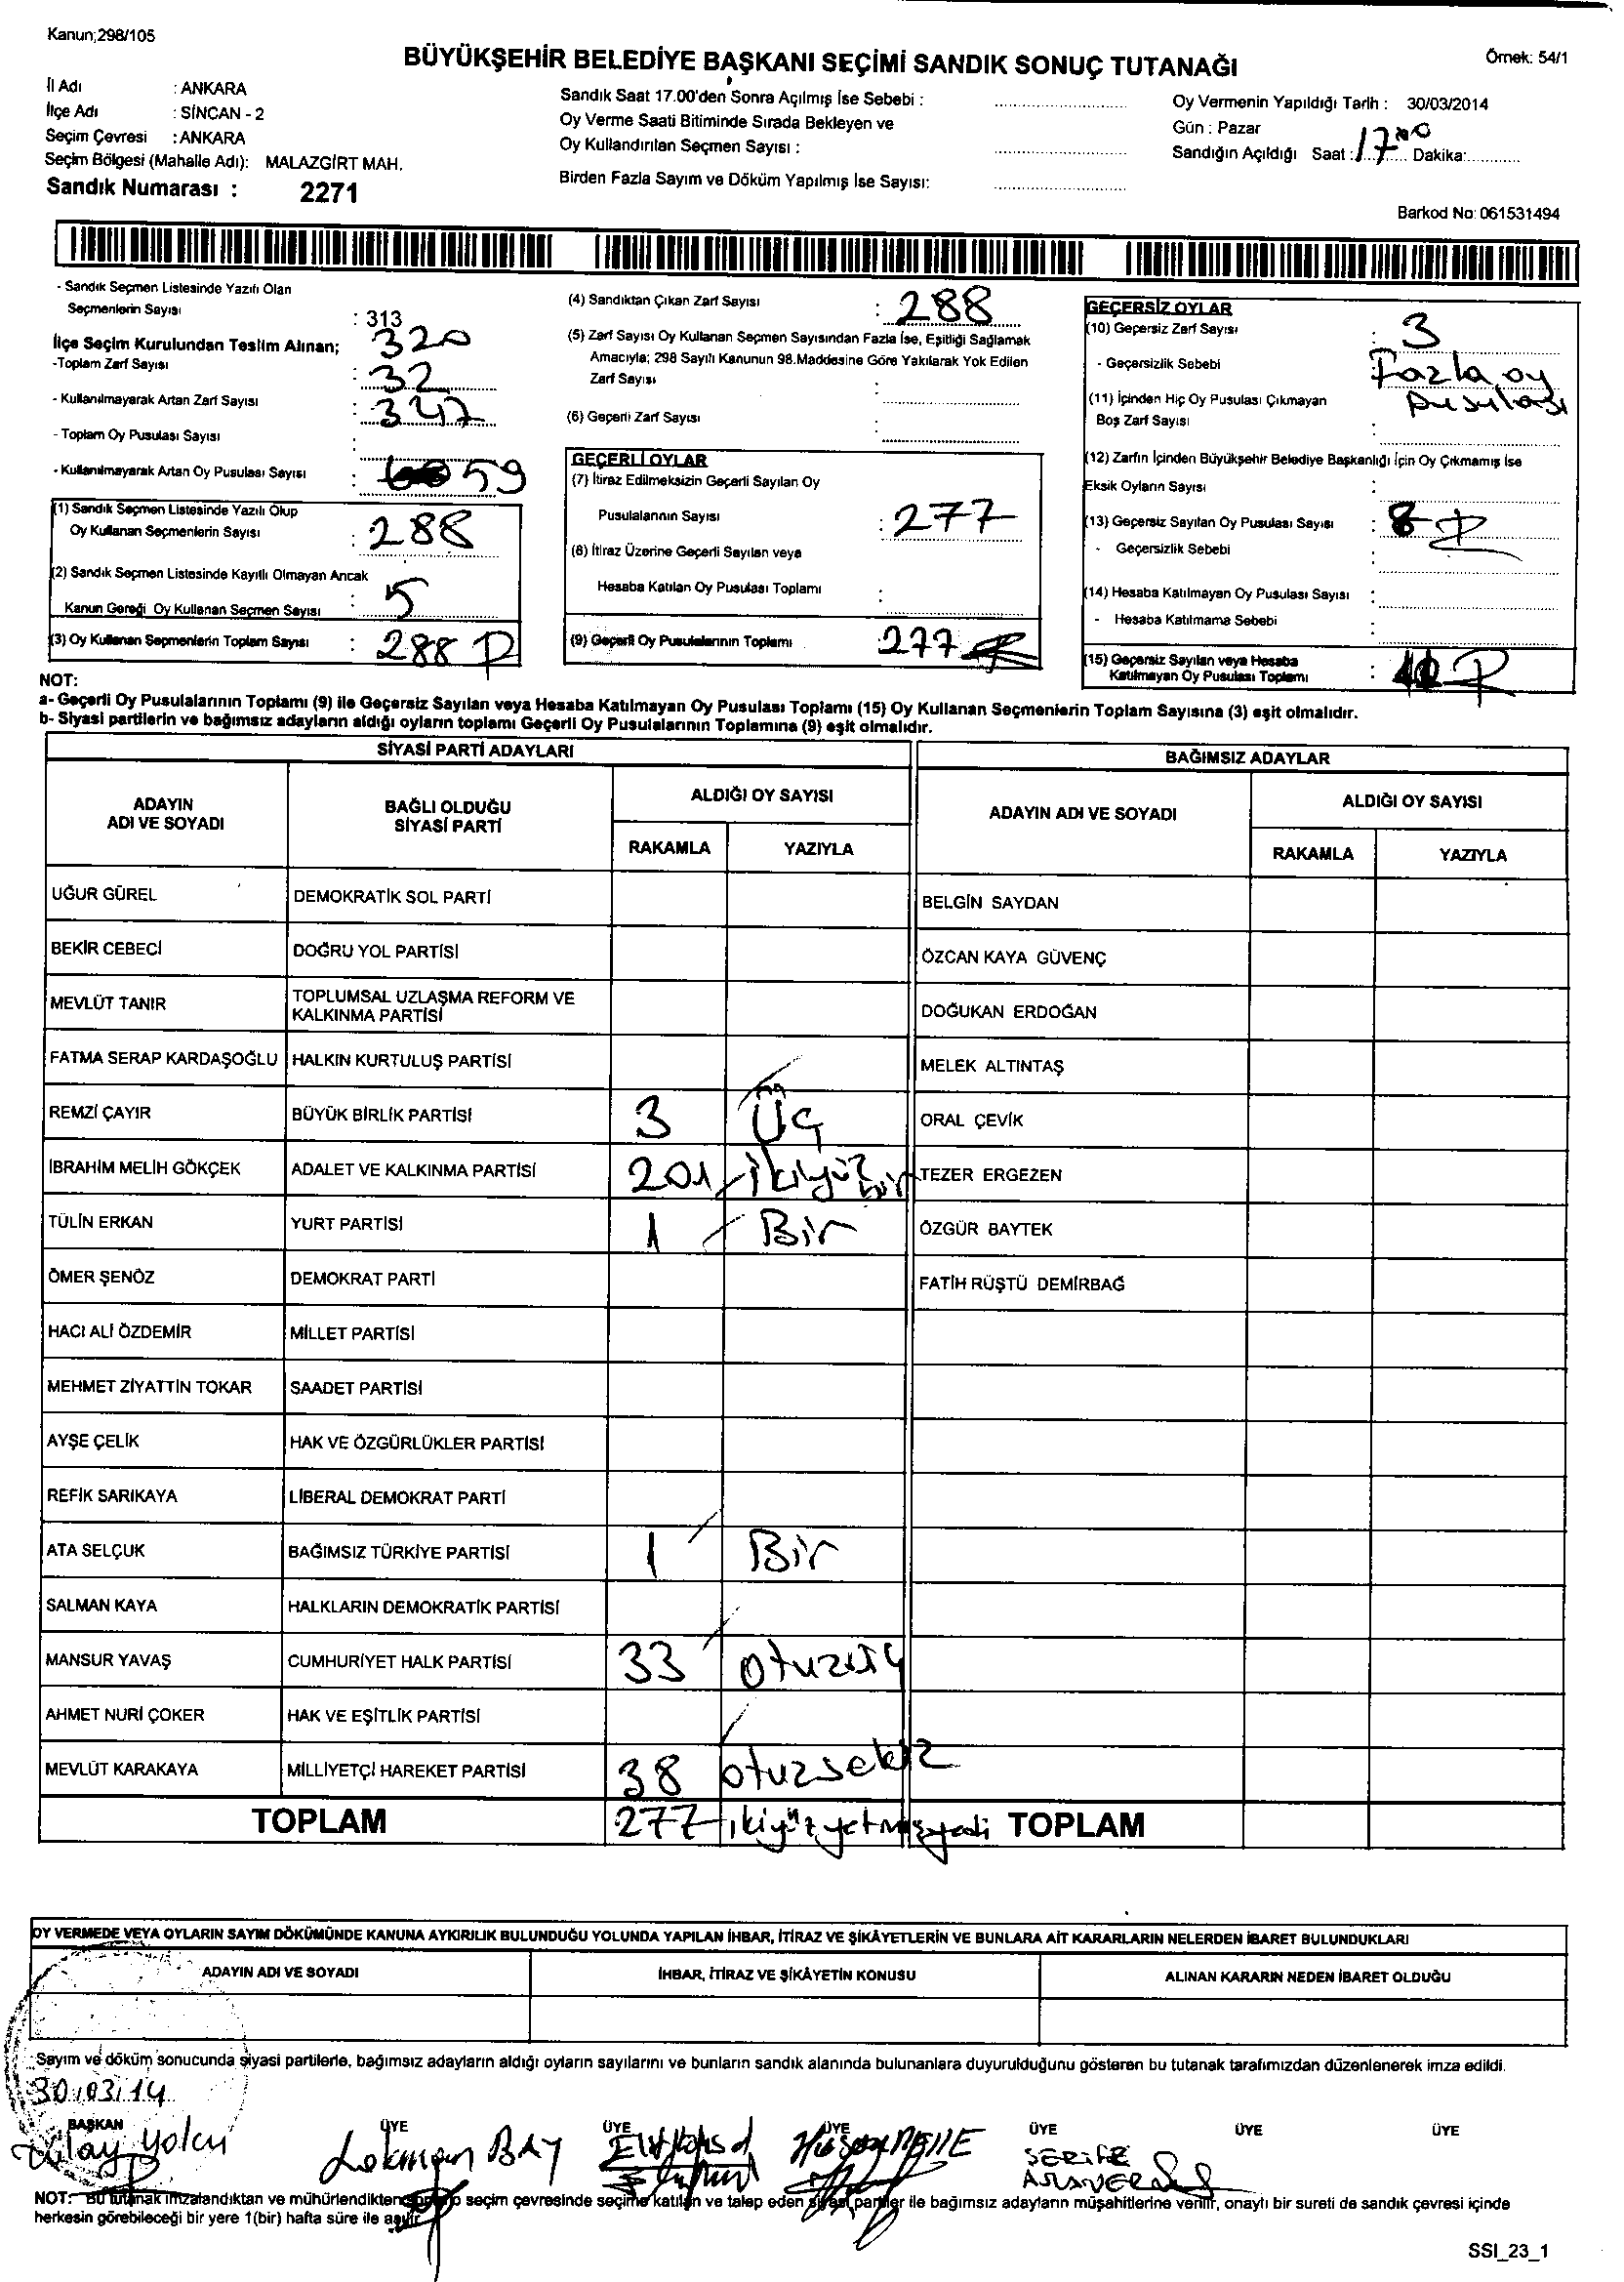 Kanun;298/105
BÜYÜKŞEHİR BELEDİYE BAŞKANI SEÇİMİ SANDIK SONUÇ TUTANAĞI
Örnek: 54/1
İl Adı : ANKARA
İlçe Adı : SİNCAN - 2
Seçim Çevresi : ANKARA
Seçim Bölgesi (Mahalle Adı): MALAZGİRT MAH.
Sandık Numarası : 2271
Sandık Saat 17.00'den Sonra Açılmış İse Sebebi :
Oy Verme Saati Bitiminde Sırada Bekleyen ve
Oy Kullandırılan Seçmen Sayısı :
Birden Fazla Sayım ve Döküm Yapılmış İse Sayısı:
Oy Vermenin Yapıldığı Tarih : 30/03/2014
Gün : Pazar
Sandığın Açıldığı Saat : 17 00 Dakika:
Barkod No: 061531494
- Sandık Seçmen Listesinde Yazılı Olan
Seçmenlerin Sayısı : 313
İlçe Seçim Kurulundan Teslim Alınan; 320
-Toplam Zarf Sayısı : 32
- Kullanılmayarak Artan Zarf Sayısı : 347
- Toplam Oy Pusulası Sayısı :
- Kullanılmayarak Artan Oy Pusulası Sayısı : 59
(1) Sandık Seçmen Listesinde Yazılı Olup
Oy Kullanan Seçmenlerin Sayısı : 288
(2) Sandık Seçmen Listesinde Kayıtlı Olmayan Ancak
Kanun Gereği Oy Kullanan Seçmen Sayısı : 5
(3) Oy Kullanan Seçmenlerin Toplam Sayısı : 288
(4) Sandıktan Çıkan Zarf Sayısı : 288
(5) Zarf Sayısı Oy Kullanan Seçmen Sayısından Fazla İse, Eşitliği Sağlamak
Amacıyla; 298 Sayılı Kanunun 98.Maddesine Göre Yakılarak Yok Edilen
Zarf Sayısı :
(6) Geçerli Zarf Sayısı :
GEÇERLİ OYLAR
(7) İtiraz Edilmeksizin Geçerli Sayılan Oy
Pusulalarının Sayısı : 277
(8) İtiraz Üzerine Geçerli Sayılan veya
Hesaba Katılan Oy Pusulası Toplamı :
(9) Geçerli Oy Pusulalarının Toplamı : 277
GEÇERSİZ OYLAR
(10) Geçersiz Zarf Sayısı : 3
- Geçersizlik Sebebi : Fazla oy
pusulası
(11) İçinden Hiç Oy Pusulası Çıkmayan
Boş Zarf Sayısı :
(12) Zarfın İçinden Büyükşehir Belediye Başkanlığı İçin Oy Çıkmamış İse
Eksik Oyların Sayısı :
(13) Geçersiz Sayılan Oy Pusulası Sayısı : 8
- Geçersizlik Sebebi :
(14) Hesaba Katılmayan Oy Pusulası Sayısı :
- Hesaba Katılmama Sebebi :
(15) Geçersiz Sayılan veya Hesaba
Katılmayan Oy Pusulası Toplamı :
NOT:
a- Geçerli Oy Pusulalarının Toplamı (9) ile Geçersiz Sayılan veya Hesaba Katılmayan Oy Pusulası Toplamı (15) Oy Kullanan Seçmenlerin Toplam Sayısına (3) eşit olmalıdır.
b- Siyasi partilerin ve bağımsız adayların aldığı oyların toplamı Geçerli Oy Pusulalarının Toplamına (9) eşit olmalıdır.
SİYASİ PARTİ ADAYLARI
BAĞIMSIZ ADAYLAR
ADAYIN ADI VE SOYADI
BAĞLI OLDUĞU SİYASİ PARTİ
ALDIĞI OY SAYISI
RAKAMLA YAZIYLA
ADAYIN ADI VE SOYADI
ALDIĞI OY SAYISI
RAKAMLA YAZIYLA
UĞUR GÜREL DEMOKRATİK SOL PARTİ BELGİN SAYDAN
BEKİR CEBECİ DOĞRU YOL PARTİSİ ÖZCAN KAYA GÜVENÇ
MEVLÜT TANIR TOPLUMSAL UZLAŞMA REFORM VE KALKINMA PARTİSİ DOĞUKAN ERDOĞAN
FATMA SERAP KARDAŞOĞLU HALKIN KURTULUŞ PARTİSİ MELEK ALTINTAŞ
REMZİ ÇAYIR BÜYÜK BİRLİK PARTİSİ 3 Üç ORAL ÇEVİK
İBRAHİM MELİH GÖKÇEK ADALET VE KALKINMA PARTİSİ 201 ikiyüzbir TEZER ERGEZEN
TÜLİN ERKAN YURT PARTİSİ 1 Bir ÖZGÜR BAYTEK
ÖMER ŞENÖZ DEMOKRAT PARTİ FATİH RÜŞTÜ DEMİRBAĞ
HACI ALİ ÖZDEMİR MİLLET PARTİSİ
MEHMET ZİYATTİN TOKAR SAADET PARTİSİ
AYŞE ÇELİK HAK VE ÖZGÜRLÜKLER PARTİSİ
REFİK SARIKAYA LİBERAL DEMOKRAT PARTİ
ATA SELÇUK BAĞIMSIZ TÜRKİYE PARTİSİ 1 Bir
SALMAN KAYA HALKLARIN DEMOKRATİK PARTİSİ
MANSUR YAVAŞ CUMHURİYET HALK PARTİSİ 33 otuzüç
AHMET NURİ ÇOKER HAK VE EŞİTLİK PARTİSİ
MEVLÜT KARAKAYA MİLLİYETÇİ HAREKET PARTİSİ 38 otuzsekiz
TOPLAM 277 ikiyüzyetmişyedi TOPLAM
OY VERMEDE VEYA OYLARIN SAYIM DÖKÜMÜNDE KANUNA AYKIRILIK BULUNDUĞU YOLUNDA YAPILAN İHBAR, İTİRAZ VE ŞİKÂYETLERİN VE BUNLARA AİT KARARLARIN NELERDEN İBARET BULUNDUKLARI
ADAYIN ADI VE SOYADI İHBAR, İTİRAZ VE ŞİKÂYETİN KONUSU ALINAN KARARIN NEDEN İBARET OLDUĞU
Sayım ve döküm sonucunda siyasi partilerle, bağımsız adayların aldığı oyların sayılarını ve bunların sandık alanında bulunanlara duyurulduğunu gösteren bu tutanak tarafımızdan düzenlenerek imza edildi.
30.03.14
BAŞKAN ÜYE ÜYE ÜYE ÜYE ÜYE ÜYE
Yolcu Lokman BAY SERİFE
NOT: Bu tutanak imzalandıktan ve mühürlendikten seçim çevresinde seçime katılan ve talep eden siyasi partiler ile bağımsız adayların müşahitlerine verilir, onaylı bir sureti de sandık çevresi içinde
herkesin görebileceği bir yere 1(bir) hafta süre ile asılır.
SSI_23_1